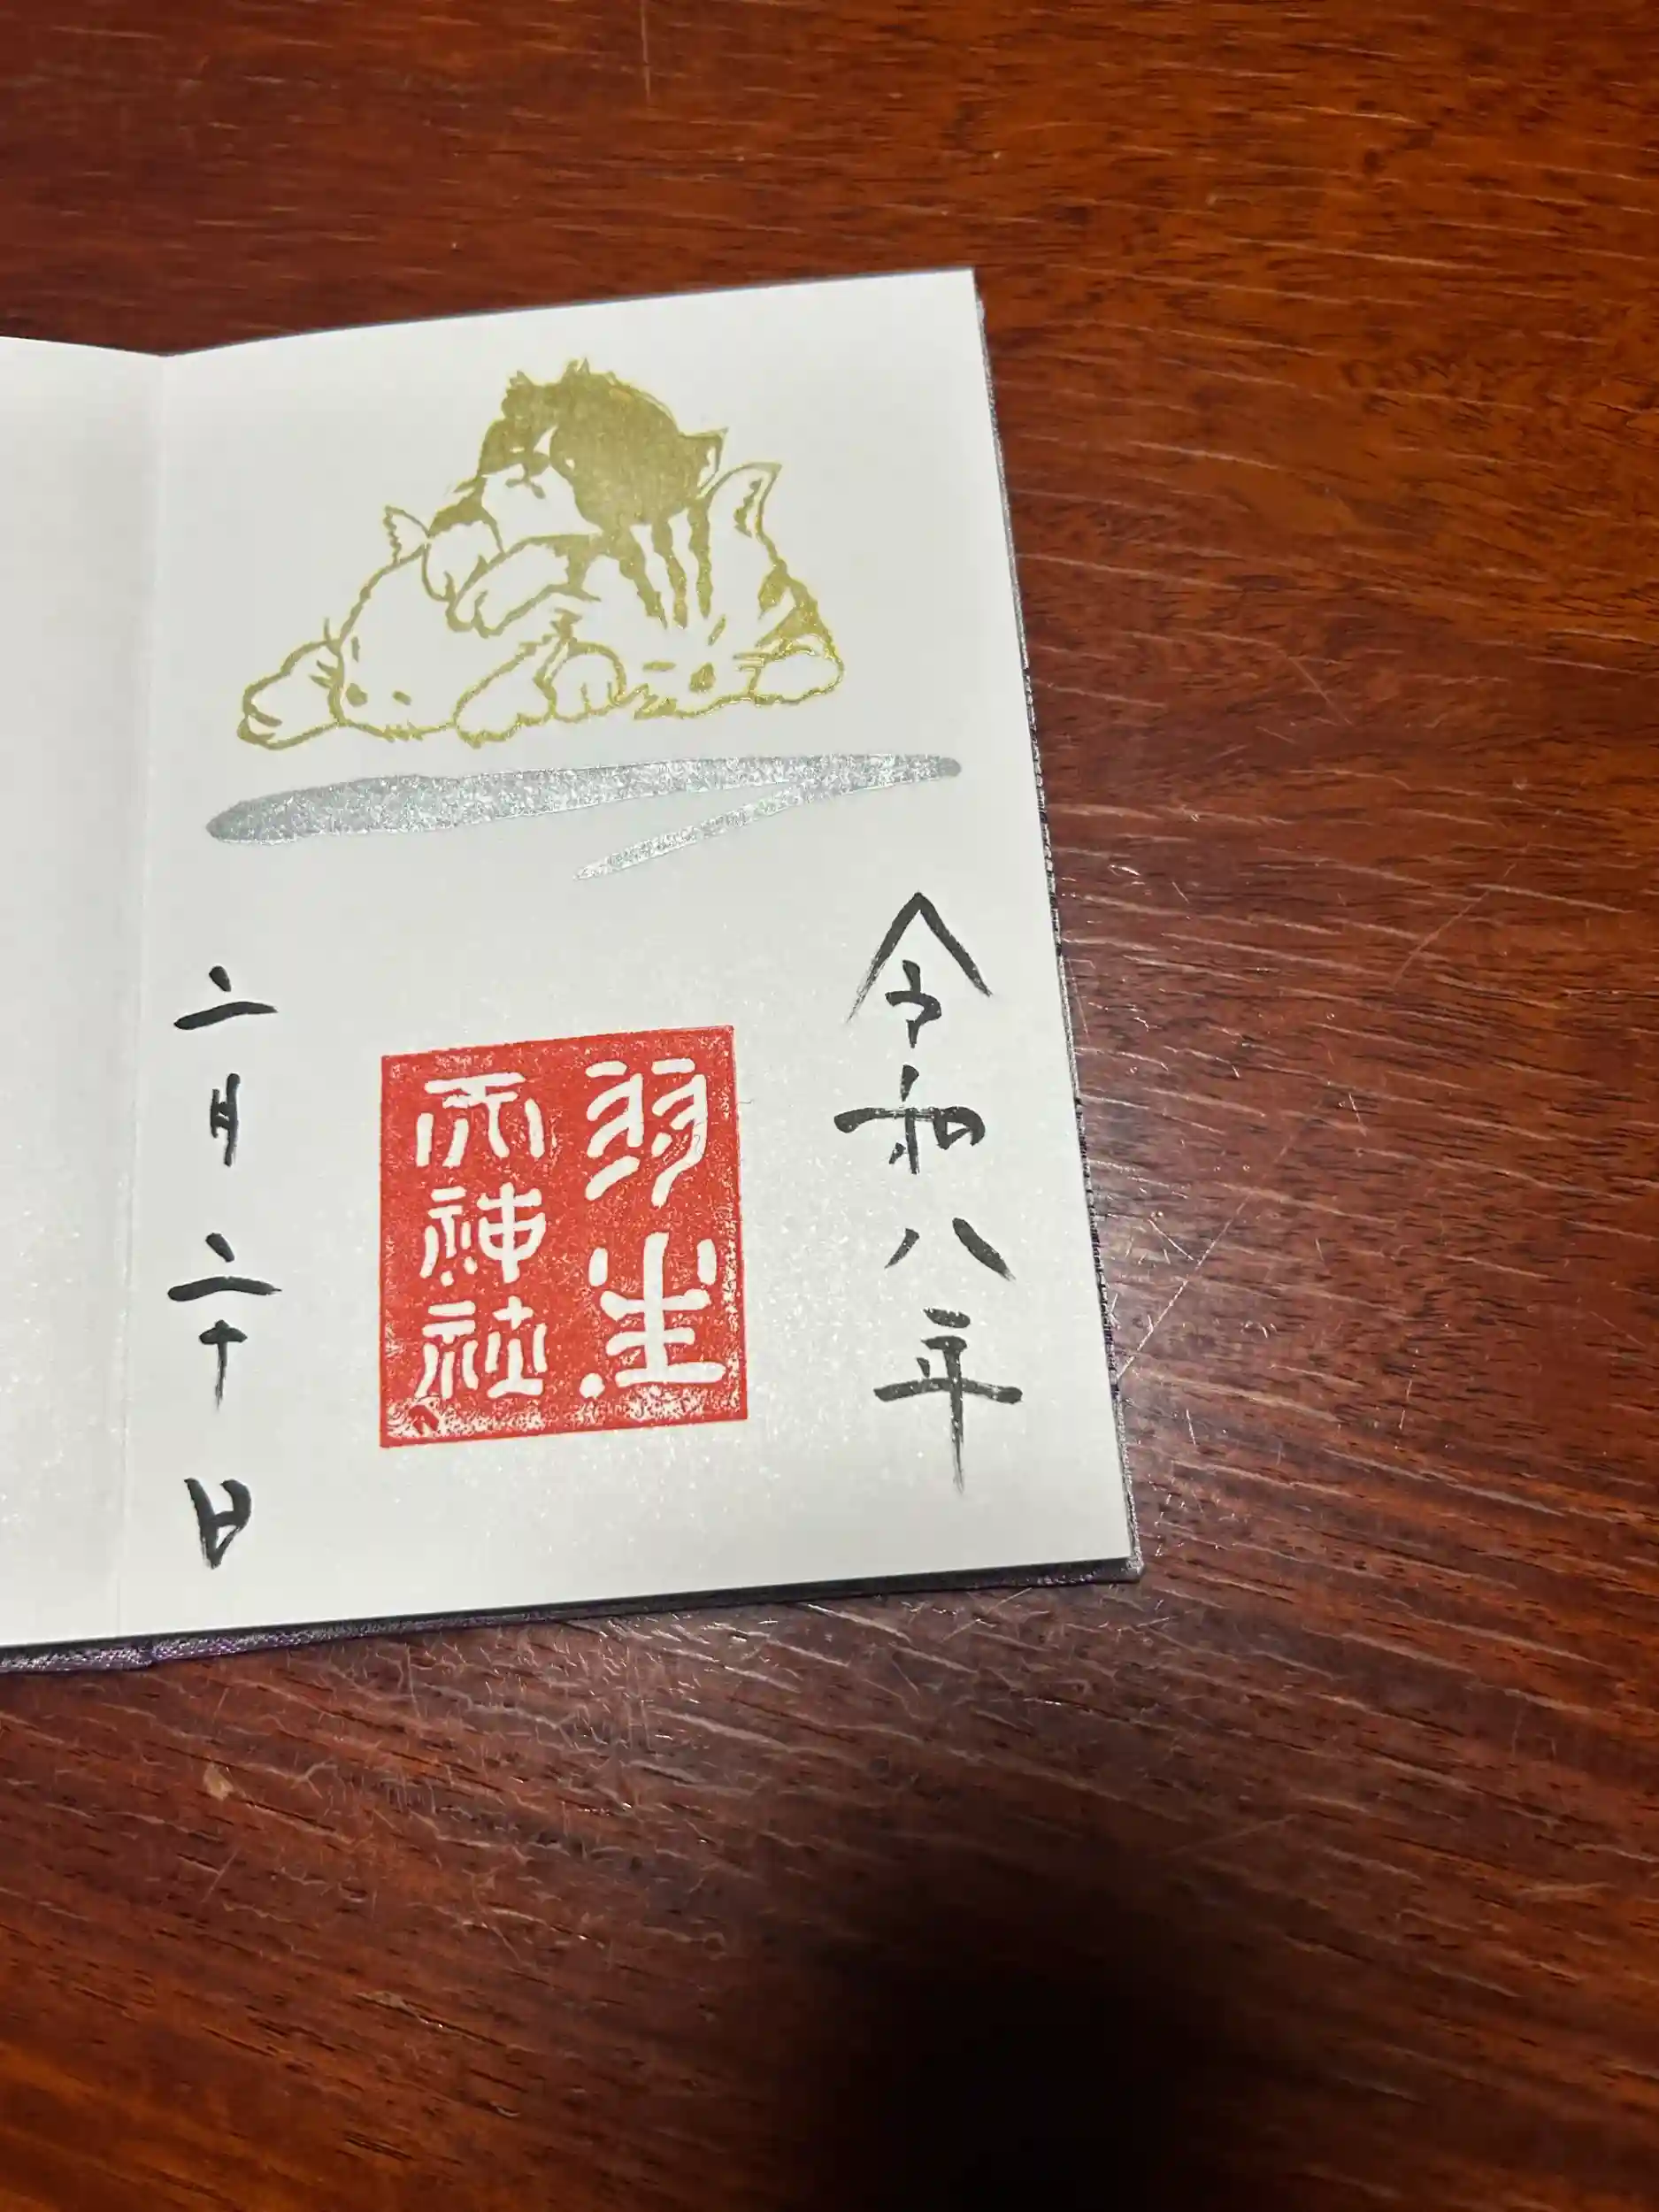 令和八年
羽生
天神社
二月二十日